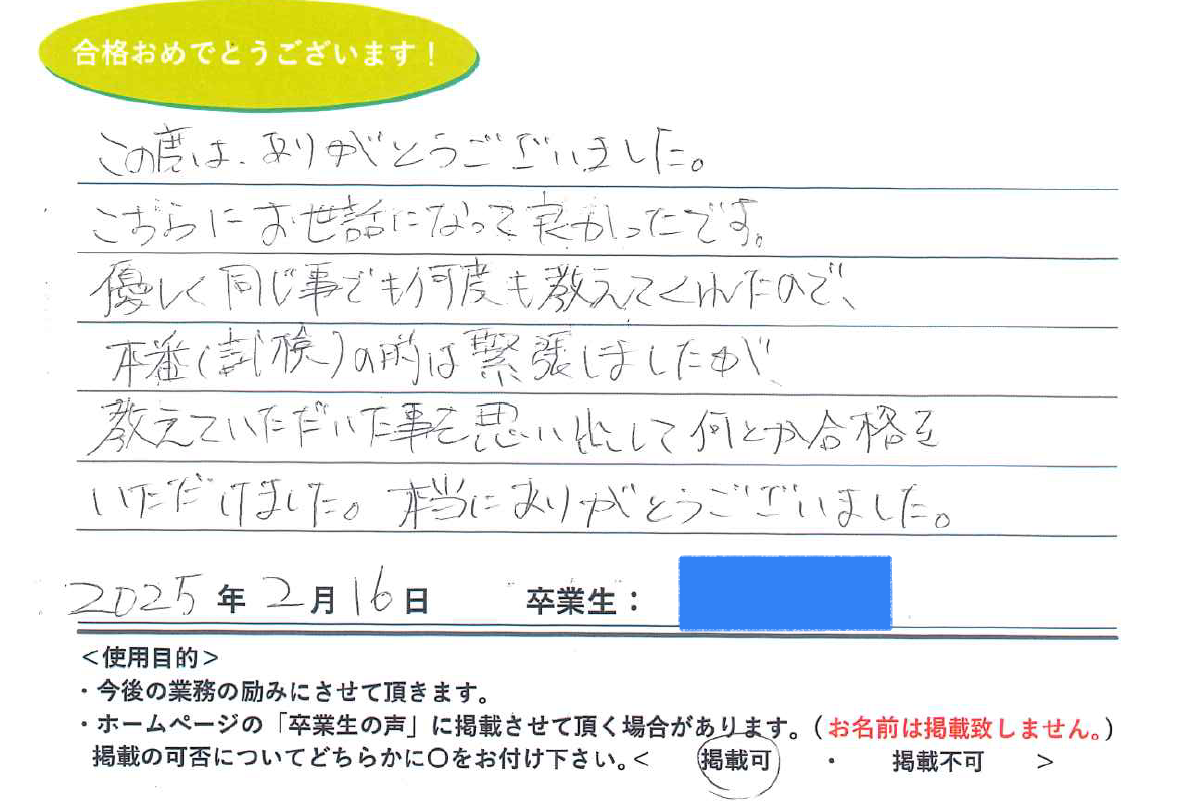 合格おめでとうございます！
この度は、ありがとうございました。
こちらにお世話になって良かったです。
優しく同じ事でも何度も教えてくれたので、
本番(試検)の前は緊張しましたが、
教えていただいた事を思い出して何とか合格を
いただけました。本当にありがとうございました。
2025年2月16日 卒業生：
＜使用目的＞
・今後の業務の励みにさせて頂きます。
・ホームページの「卒業生の声」に掲載させて頂く場合があります。（お名前は掲載致しません。）
掲載の可否についてどちらかに〇をお付け下さい。＜ 掲載可 ・ 掲載不可 ＞